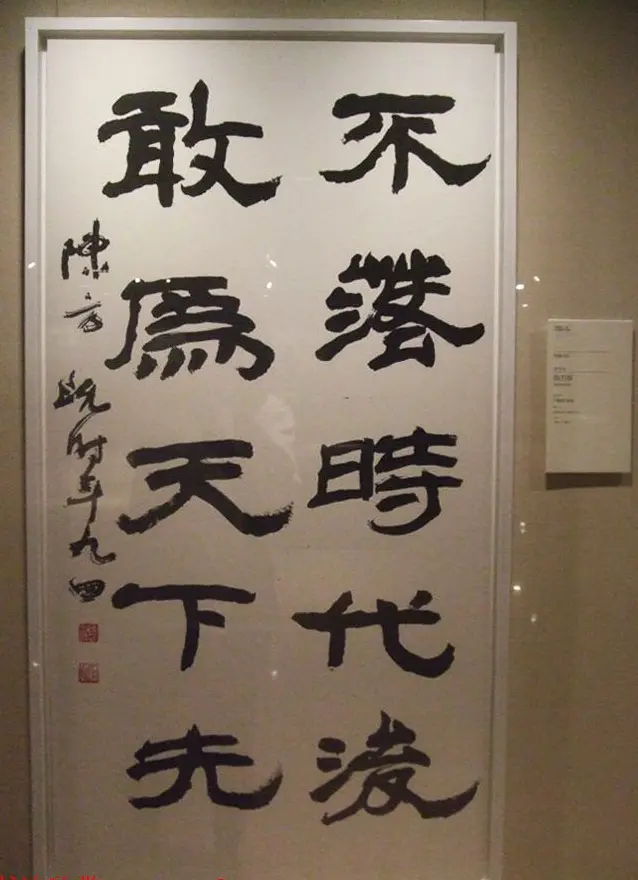 不落時代後
敢爲天下先
陳方既時年九四